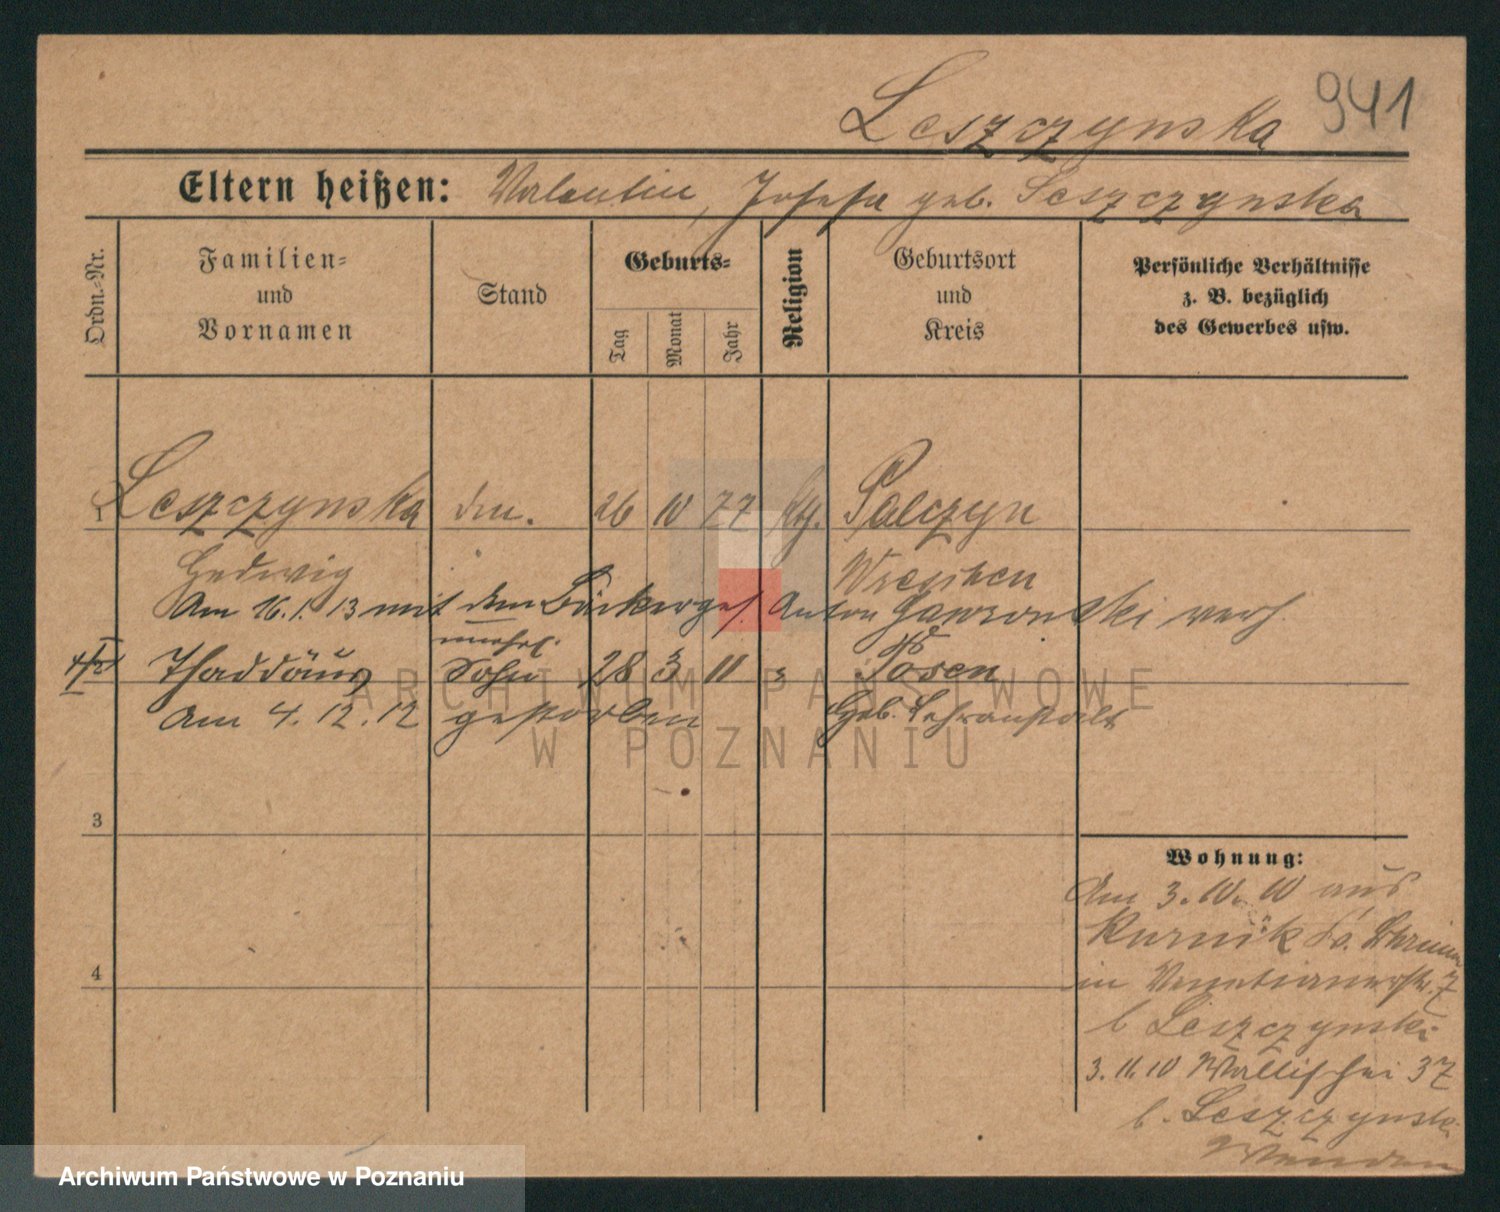 Leszczynska 941
Eltern heißen: Valentin, Josefa geb. Leszczynska
Ordn.-Nr.
Familien-
und
Vornamen
Stand
Geburts-
Tag
Monat
Jahr
Religion
Geburtsort
und
Kreis
Persönliche Verhältnisse
z. B. bezüglich
des Gewerbes usw.
1 Leszczynska 26 10 77 Palczyn
Hedwig Wreschen
Am 16.1.13 mit dem Bäckerges. Anton verh.
unehel.
Thaddäus Sohn 28 3 11 Posen
Am 4.12.12 gestorben Geb. Lehranstalt
3
4
Wohnung:
Am 3.10.10 aus
Kurnik
in Venetianerstr. 7
b Leszczynski
3.11.10 Wallischei 37
b. Leszczynski
ARCHIWUM PAŃSTWOWE
W POZNANIU
Archiwum Państwowe w Poznaniu